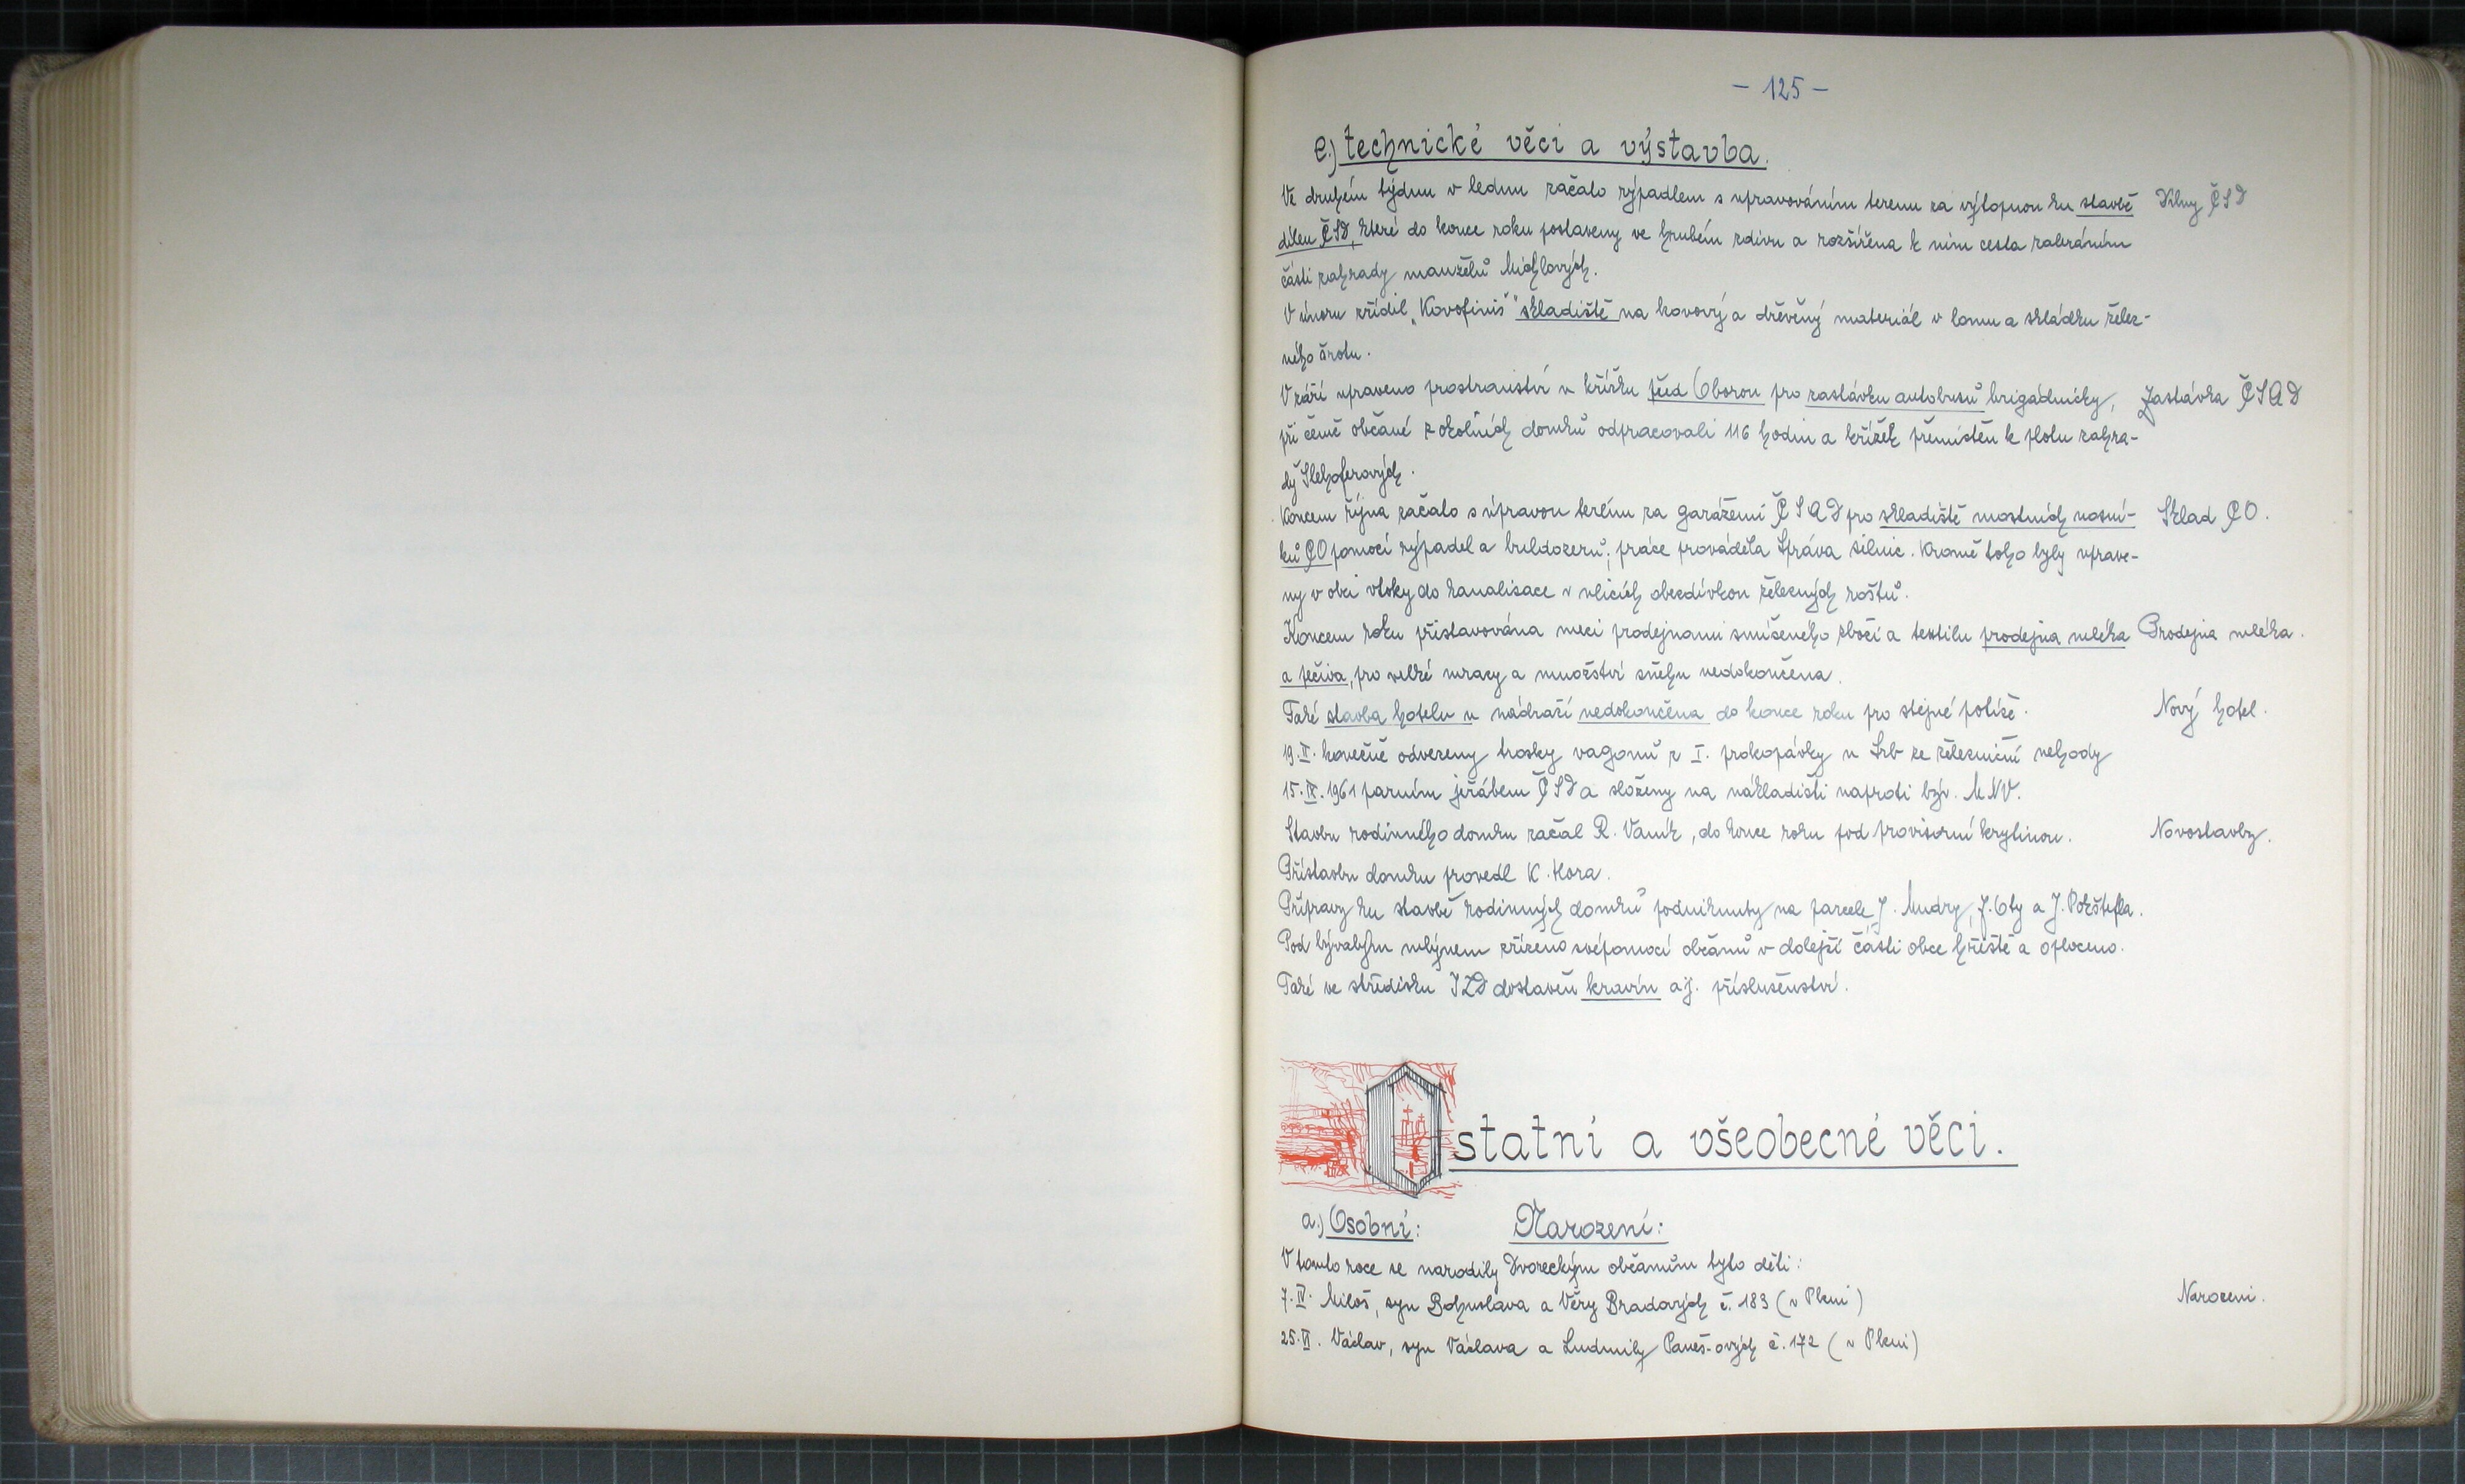 - 125 -
e.) technické věci a výstavba.
Ve druhém týdnu v lednu začalo rýpadlem s upravováním terenu za výtopnou ku stavbě Dílny ČSD
dílen ČSD, které do konce roku postaveny ve hrubém zdivu a rozšířena k nim cesta zabráním
části zahrady manželů Michlových.
V únoru zřídil „Kovofiniš" skladiště na kovový a dřevěný materiál v lomu a skládku želez-
ného šrotu.
V září upraveno prostranství u křížku před Oborou pro zastávku autobusů brigádnicky, Zastávka ČSAD
při čemž občané z okolních domků odpracovali 116 hodin a křížek přemístěn k plotu zahra-
dy Slehoferových.
Koncem října začalo s úpravou terénu za garážemi ČSAD pro skladiště mostních nosní- Sklad CO.
ků CO pomocí rýpadel a buldozerů; práce prováděla Správa silnic. Kromě toho byly uprave-
ny v obci vtoky do kanalisace v ulicích obezdívkou železných roštů.
Koncem roku přistavována mezi prodejnami smíšeného zboží a textilu prodejna mléka Prodejna mléka.
a pečiva, pro velké mrazy a množství sněhu nedokončena.
Také stavba hotelu u nádraží nedokončena do konce roku pro stejné potíže. Nový hotel.
19.II. konečně odvezeny trosky vagonů z I. prokopávky u Srb ze železniční nehody
15.IX.1961 parním jeřábem ČSD a složeny na nákladišti naproti býv. MNV.
Stavbu rodinného domku začal R. Vaník, do konce roku pod provisorní krytinou. Novostavby.
Přístavbu domku provedl K. Hora.
Přípravy ku stavbě rodinných domků podniknuty na parcele J. Mudry, J. Oty a J. Potštefla.
Pod bývalým mlýnem zřízeno svépomocí občanů v dolejší části obce hřiště a oploceno.
Také ve středisku JZD dostavěn kravín a j. příslušenství.
Ostatní a všeobecné věci.
a.) Osobní: Narození:
V tomto roce se narodily Dvoreckým občanům tyto děti:
7.IV. Miloš, syn Bohuslava a Věry Bradových č. 183 (v Plzni) Narozeni.
25.VI. Václav, syn Václava a Ludmily Paneš-ových č. 172 (v Plzni)